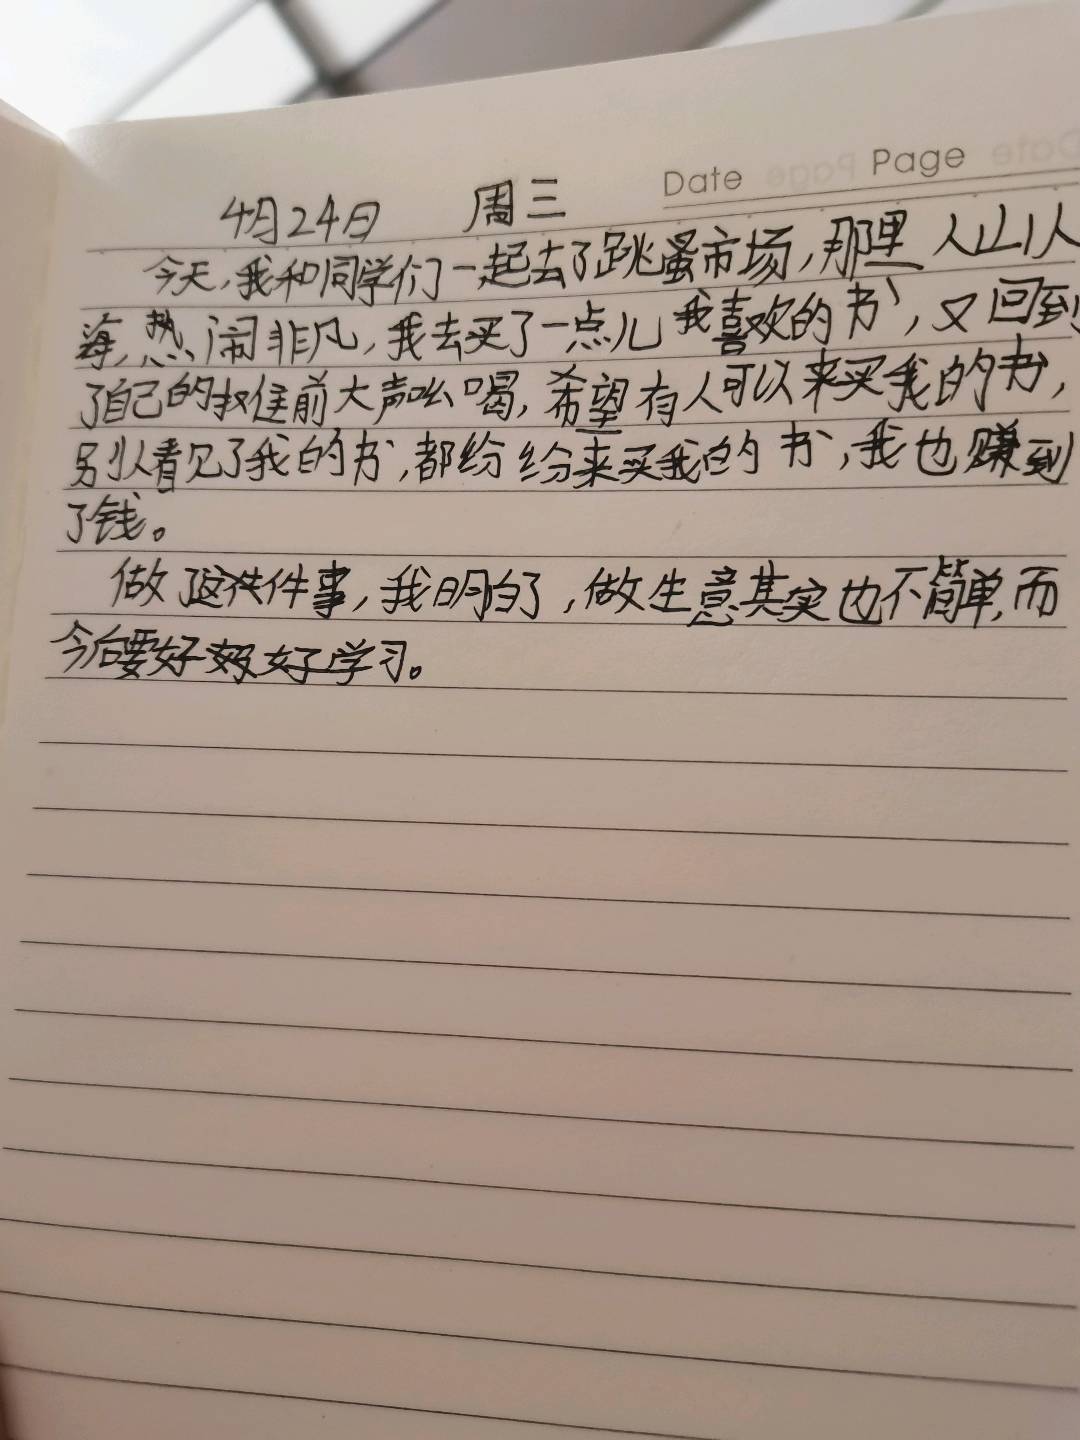 Date Page
4月24日 周三
今天,我和同学们一起去了跳蚤市场,那里人山人
海,热闹非凡,我去买了一点儿我喜欢的书,又回到
了自己的摊前大声吆喝,希望有人可以来买我的书,
别人看见了我的书,都纷纷来买我的书,我也赚到
了钱。
做了这件事,我明白了,做生意其实也不简单,而
今后要好好学习。